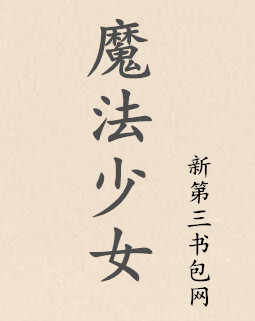 魔法少女
新第三书包网